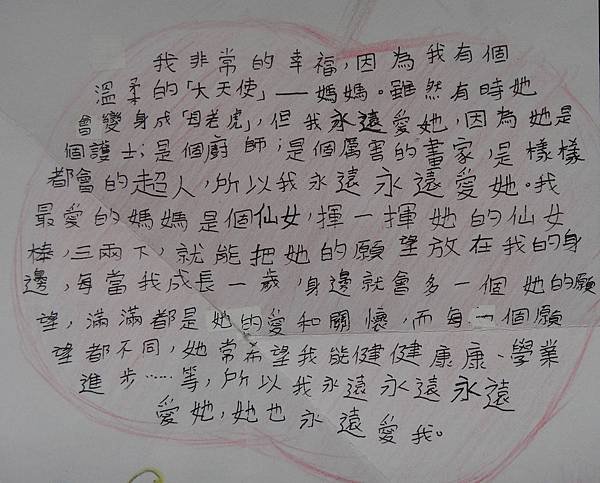 我非常的幸福，因為我有個
溫柔的「大天使」——媽媽。雖然有時她
會變身成「母老虎」，但我永遠愛她，因為她是
個護士；是個廚師；是個厲害的畫家，是樣樣
都會的超人，所以我永遠永遠愛她。我
最愛的媽媽是個仙女，揮一揮她的仙女
棒，三兩下，就能把她的願望放在我的身
邊，每當我成長一歲，身邊就會多一個她的願
望，滿滿都是她的愛和關懷，而每一個願
望都不同，她常希望我能健健康康、學業
進步……等，所以我永遠永遠永遠
愛她，她也永遠愛我。